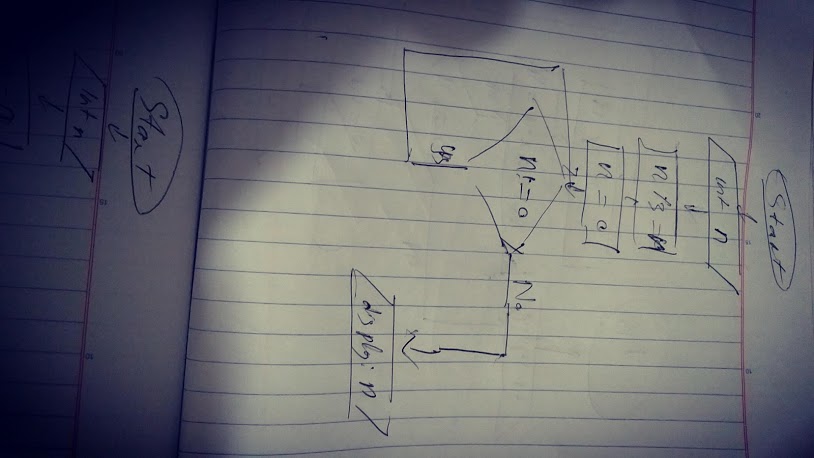 Start
int n
n = 0
n != 0
No
yes
display n
Start
int n